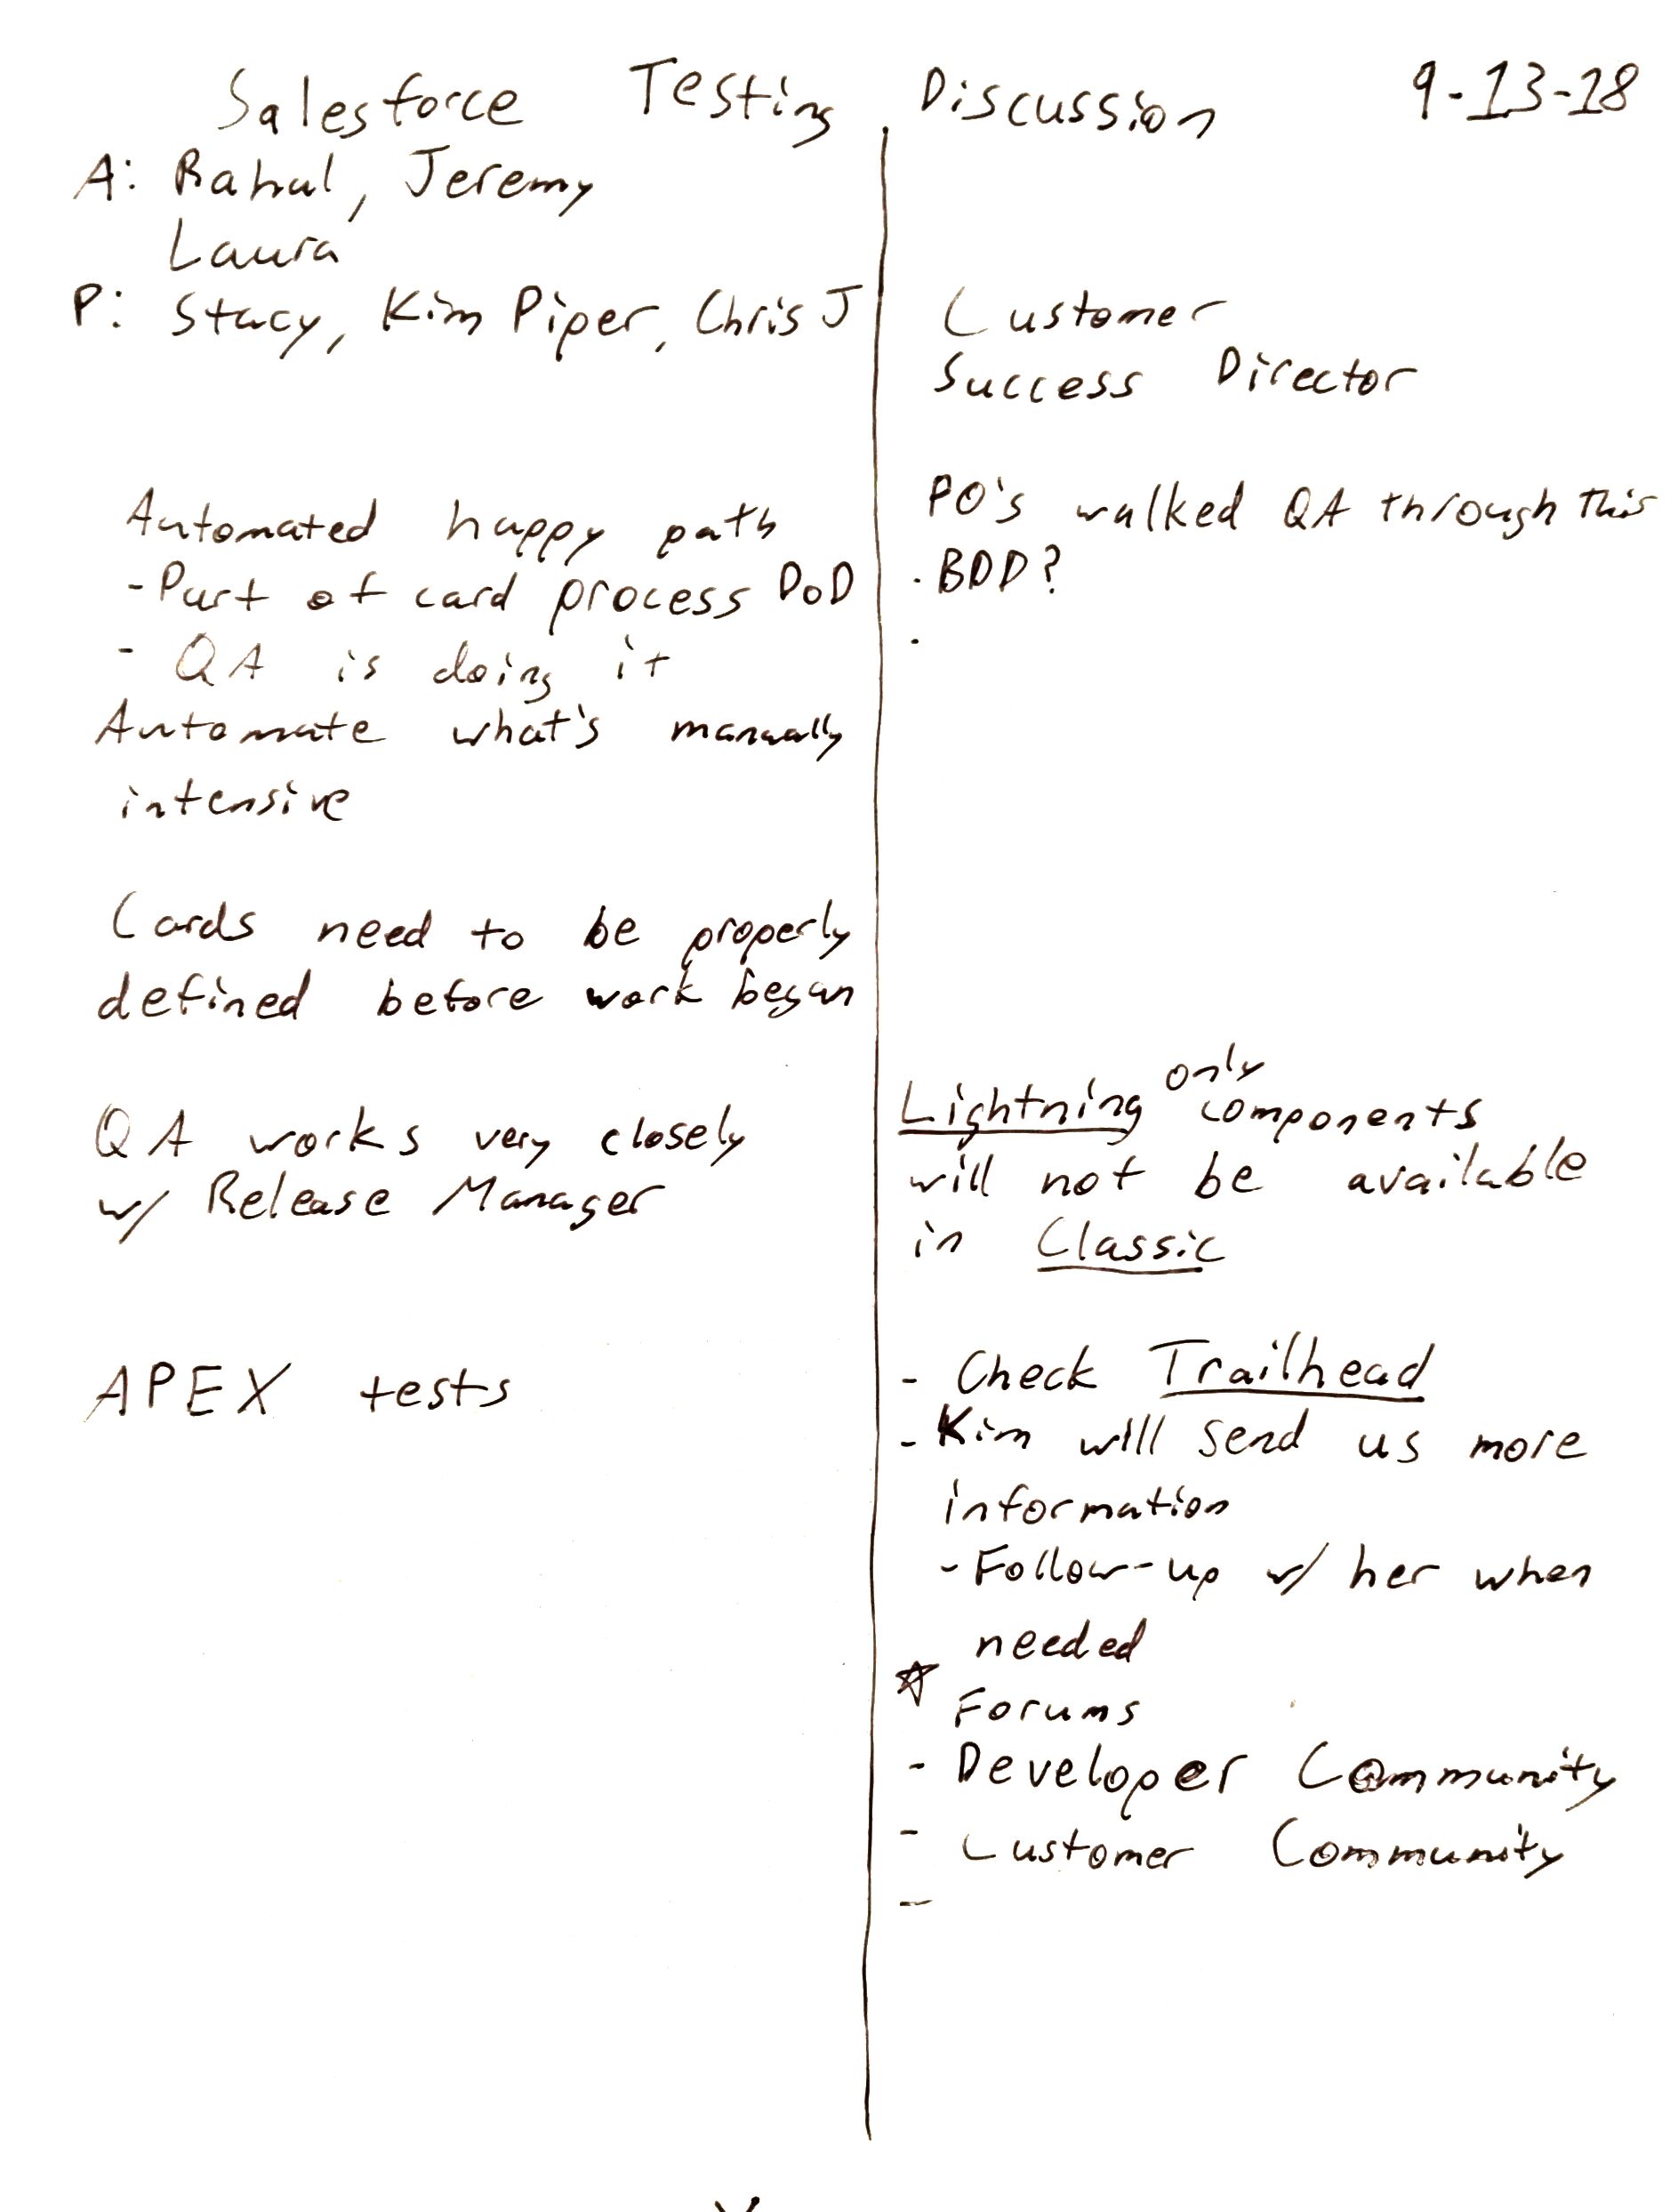 Salesforce Testing Discussion 9-13-18
A: Rahul, Jeremy
Laura
P: Stacy, Kim Piper, Chris J
Automated happy path
- Part of card process DoD
- QA is doing it
Automate what's manually
intensive
Cards need to be properly
defined before work began
QA works very closely
w/ Release Manager
APEX tests
Customer
Success Director
PO's walked QA through this
· BDD?
·
Lightning only components
will not be available
in Classic
- Check Trailhead
- Kim will send us more
information
- Follow-up w/ her when
needed
☆ Forums
- Developer Community
- Customer Community
-